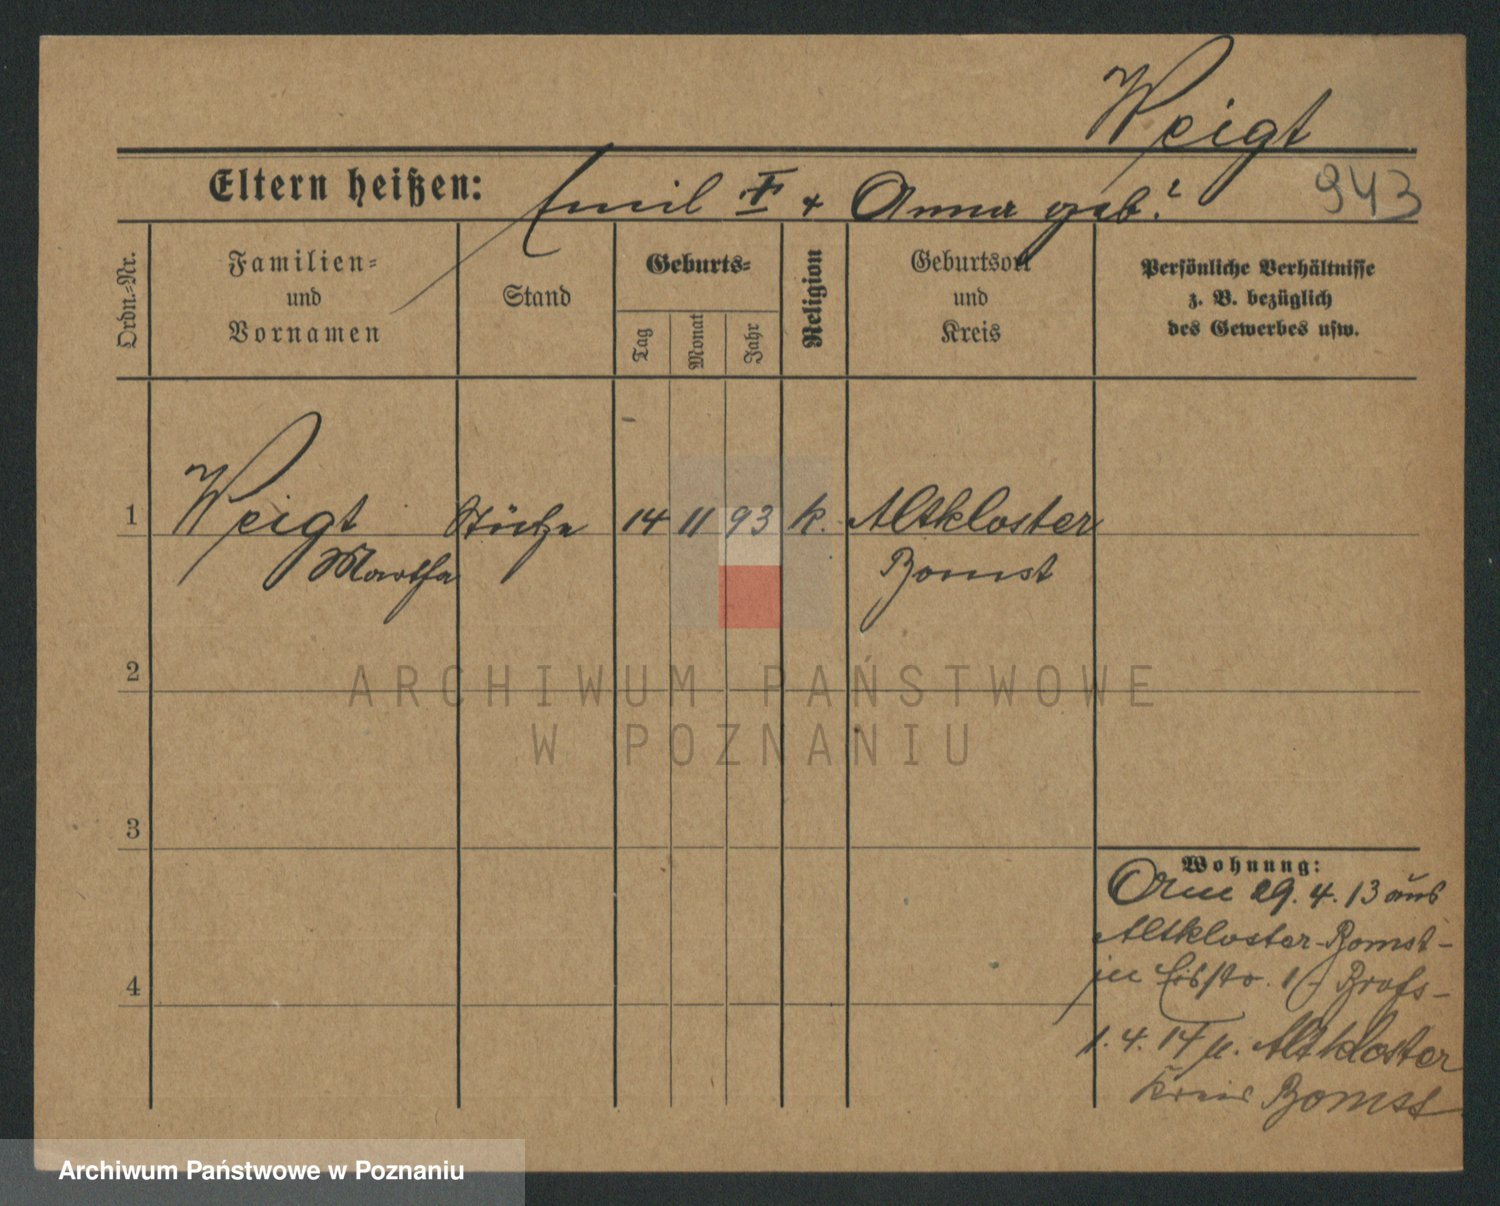 Weigt
Eltern heißen: Emil † & Anna geb. ?
943
Ordn.-Nr.
Familien-
und
Vornamen
Stand
Geburts-
Tag
Monat
Jahr
Religion
Geburtsort
und
Kreis
Persönliche Verhältnisse
z. B. bezüglich
des Gewerbes usw.
1 Weigt Stütze 14 11 93 k. Altkloster
Martha Bomst
2
ARCHIWUM PAŃSTWOWE
W POZNANIU
3
Wohnung:
Am 29. 4. 13 aus
Altkloster-Bomst-
in
4
1. 4. 14 n. Altkloster
Kreis Bomst
Archiwum Państwowe w Poznaniu